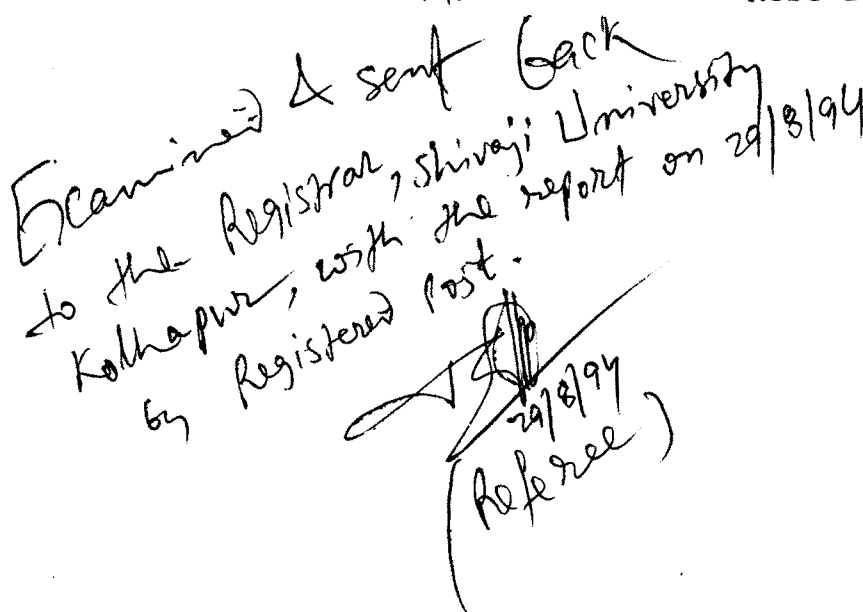 Examined & sent back
to the Registrar, Shivaji University
Kolhapur, with the report on 29/8/94
by Registered Post.
29/8/94
(Referee)